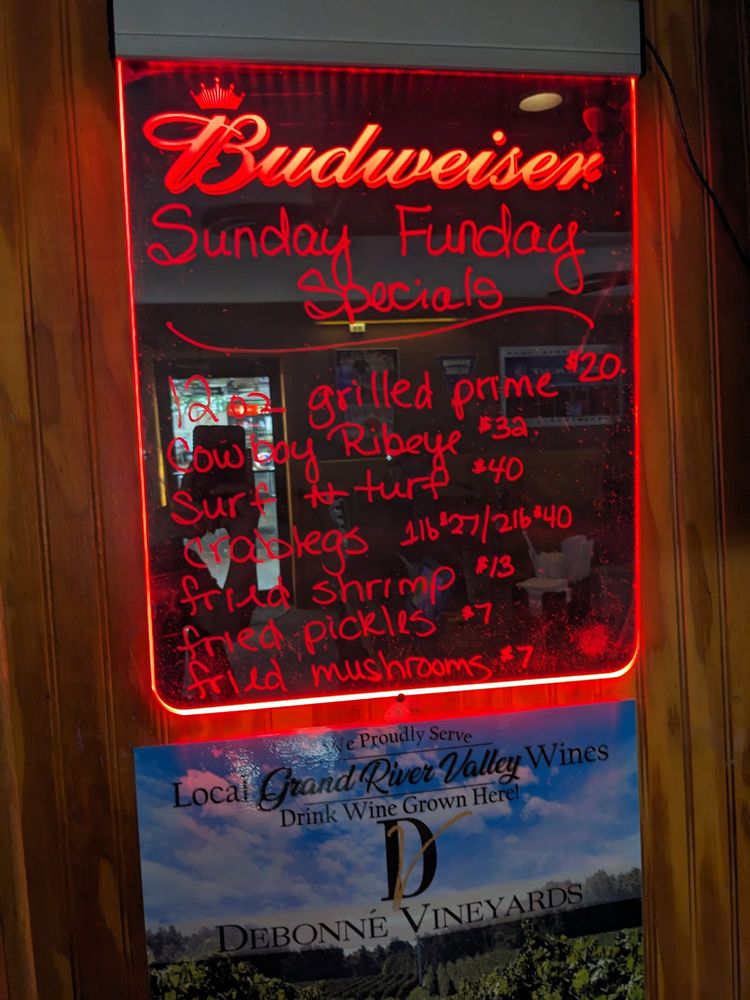 Budweiser
Sunday Funday
Specials
12 oz grilled prime $20.
Cowboy Ribeye $32
Surf & turf $40
crablegs 1lb $27/2lb $40
fried shrimp $13
fried pickles $7
fried mushrooms $7
We Proudly Serve
Local Grand River Valley Wines
Drink Wine Grown Here!
DV
DEBONNÉ VINEYARDS